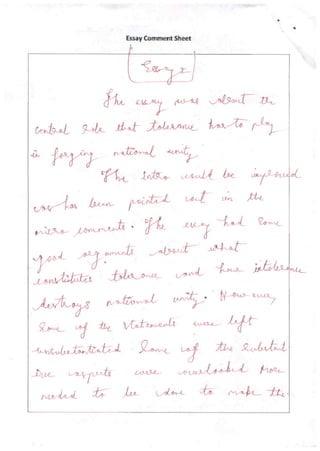 Essay Comment Sheet
Essay I
The essay was about the
central role that tolerance has to play
in forging national unity
The Intro could be improved
as has been pointed out in the
micro comments. The essay had some
good arguments about what
constitutes tolerance and how intolerance
destroys national unity. However,
Some of the statements were left
unsubstantiated. Some of the
aspects were overlooked More
needed to be done to make the